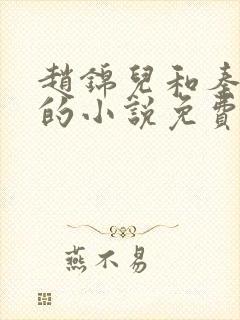 趙錦兒和秦
的小說免費
燕不易